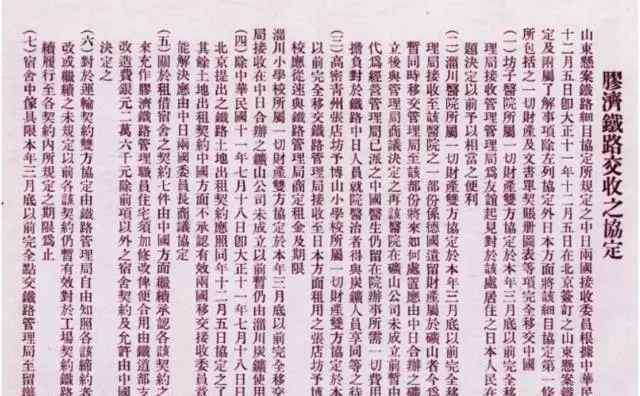 膠濟鐵路交收之協定
山東懸案鐵路細目協定所規定之中日兩國接收委員根據中華民
十二月五日卽大正十一年十二月五日在北京簽訂之山東懸案鐵
定及附屬了解事項除左列協定外日本方面將該細目協定第一條
所包括之一切財產及文書單契賬册圖表等項完全移交中國
(一)坊子醫院所屬一切財產雙方協定於本年三月底以前完全移
理局接收管理管理局爲友誼起見對於該處居住之日本人民在
題決定以前予以相當之便利
(二)淄川醫院所屬一切財產雙方協定於本年三月底以前完全移
理局接收至該醫院之一部份係德國遺留財產屬於礦山者今爲
暫同時移交管理局至該部份將來如何處置應由中日合辦之礦
立後與管理局商議決定之再該醫院在礦山公司未成立前暫由
代爲經營管理局已派之中國醫生仍留在院辦事所需一切費用
擔負對於鐵路中日人員就院醫治者得與炭礦人員享同等之待
(三)高密青州張店坊子博山小學校所屬一切財產雙方協定於本
以前完全移交鐵路管理局接收至日本方面租用之張店坊子博
校應從速與鐵路管理局商定租金及期限
淄川小學校所屬一切財產雙方協定於本年三月底以前完全移交
局接收在中日合辦之鑛山公司未成立以前暫仍由淄川炭鑛使用
(四)除中華民國十一年七月十八日卽大正十一年七月十八日日
北京提出之鐵路土地出租契約應照同年十二月五日協定之了
其餘土地出租契約中國方面不承認有效兩國移交接收委員意
能解決應由中日兩國委員長商議協定
(五)關於租借宿舍之契約七件由中國方面繼續承認各該契約之
來充作膠濟鐵路管理職員住宅須加修改俾便合用由鐵道部支
改造費銀元二萬六千元除前項以外之宿舍契約及允許由中國
決定之
(六)對於運輸契約雙方協定由鐵路管理局自由知照各該締約者
改或繼續之未規定以前各該契約仍暫有效對於工場契約鐵路
續履行至各契約內所規定之期限爲止
(七)宿舍中傢具限本年三月底以前完全點交鐵路管理局至留